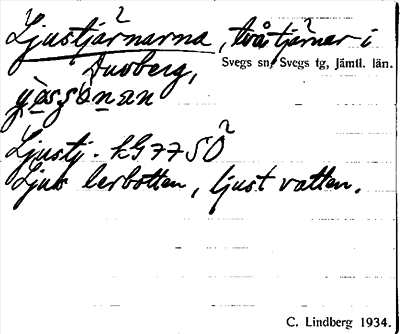 Ljustjärnarna, två tjärnar i
Duvberg,
Svegs sn, Svegs tg, Jämtl. län.
Ljustj. kG 77 SÖ
Ljus lerbotten, ljust vatten.
C. Lindberg 1934.